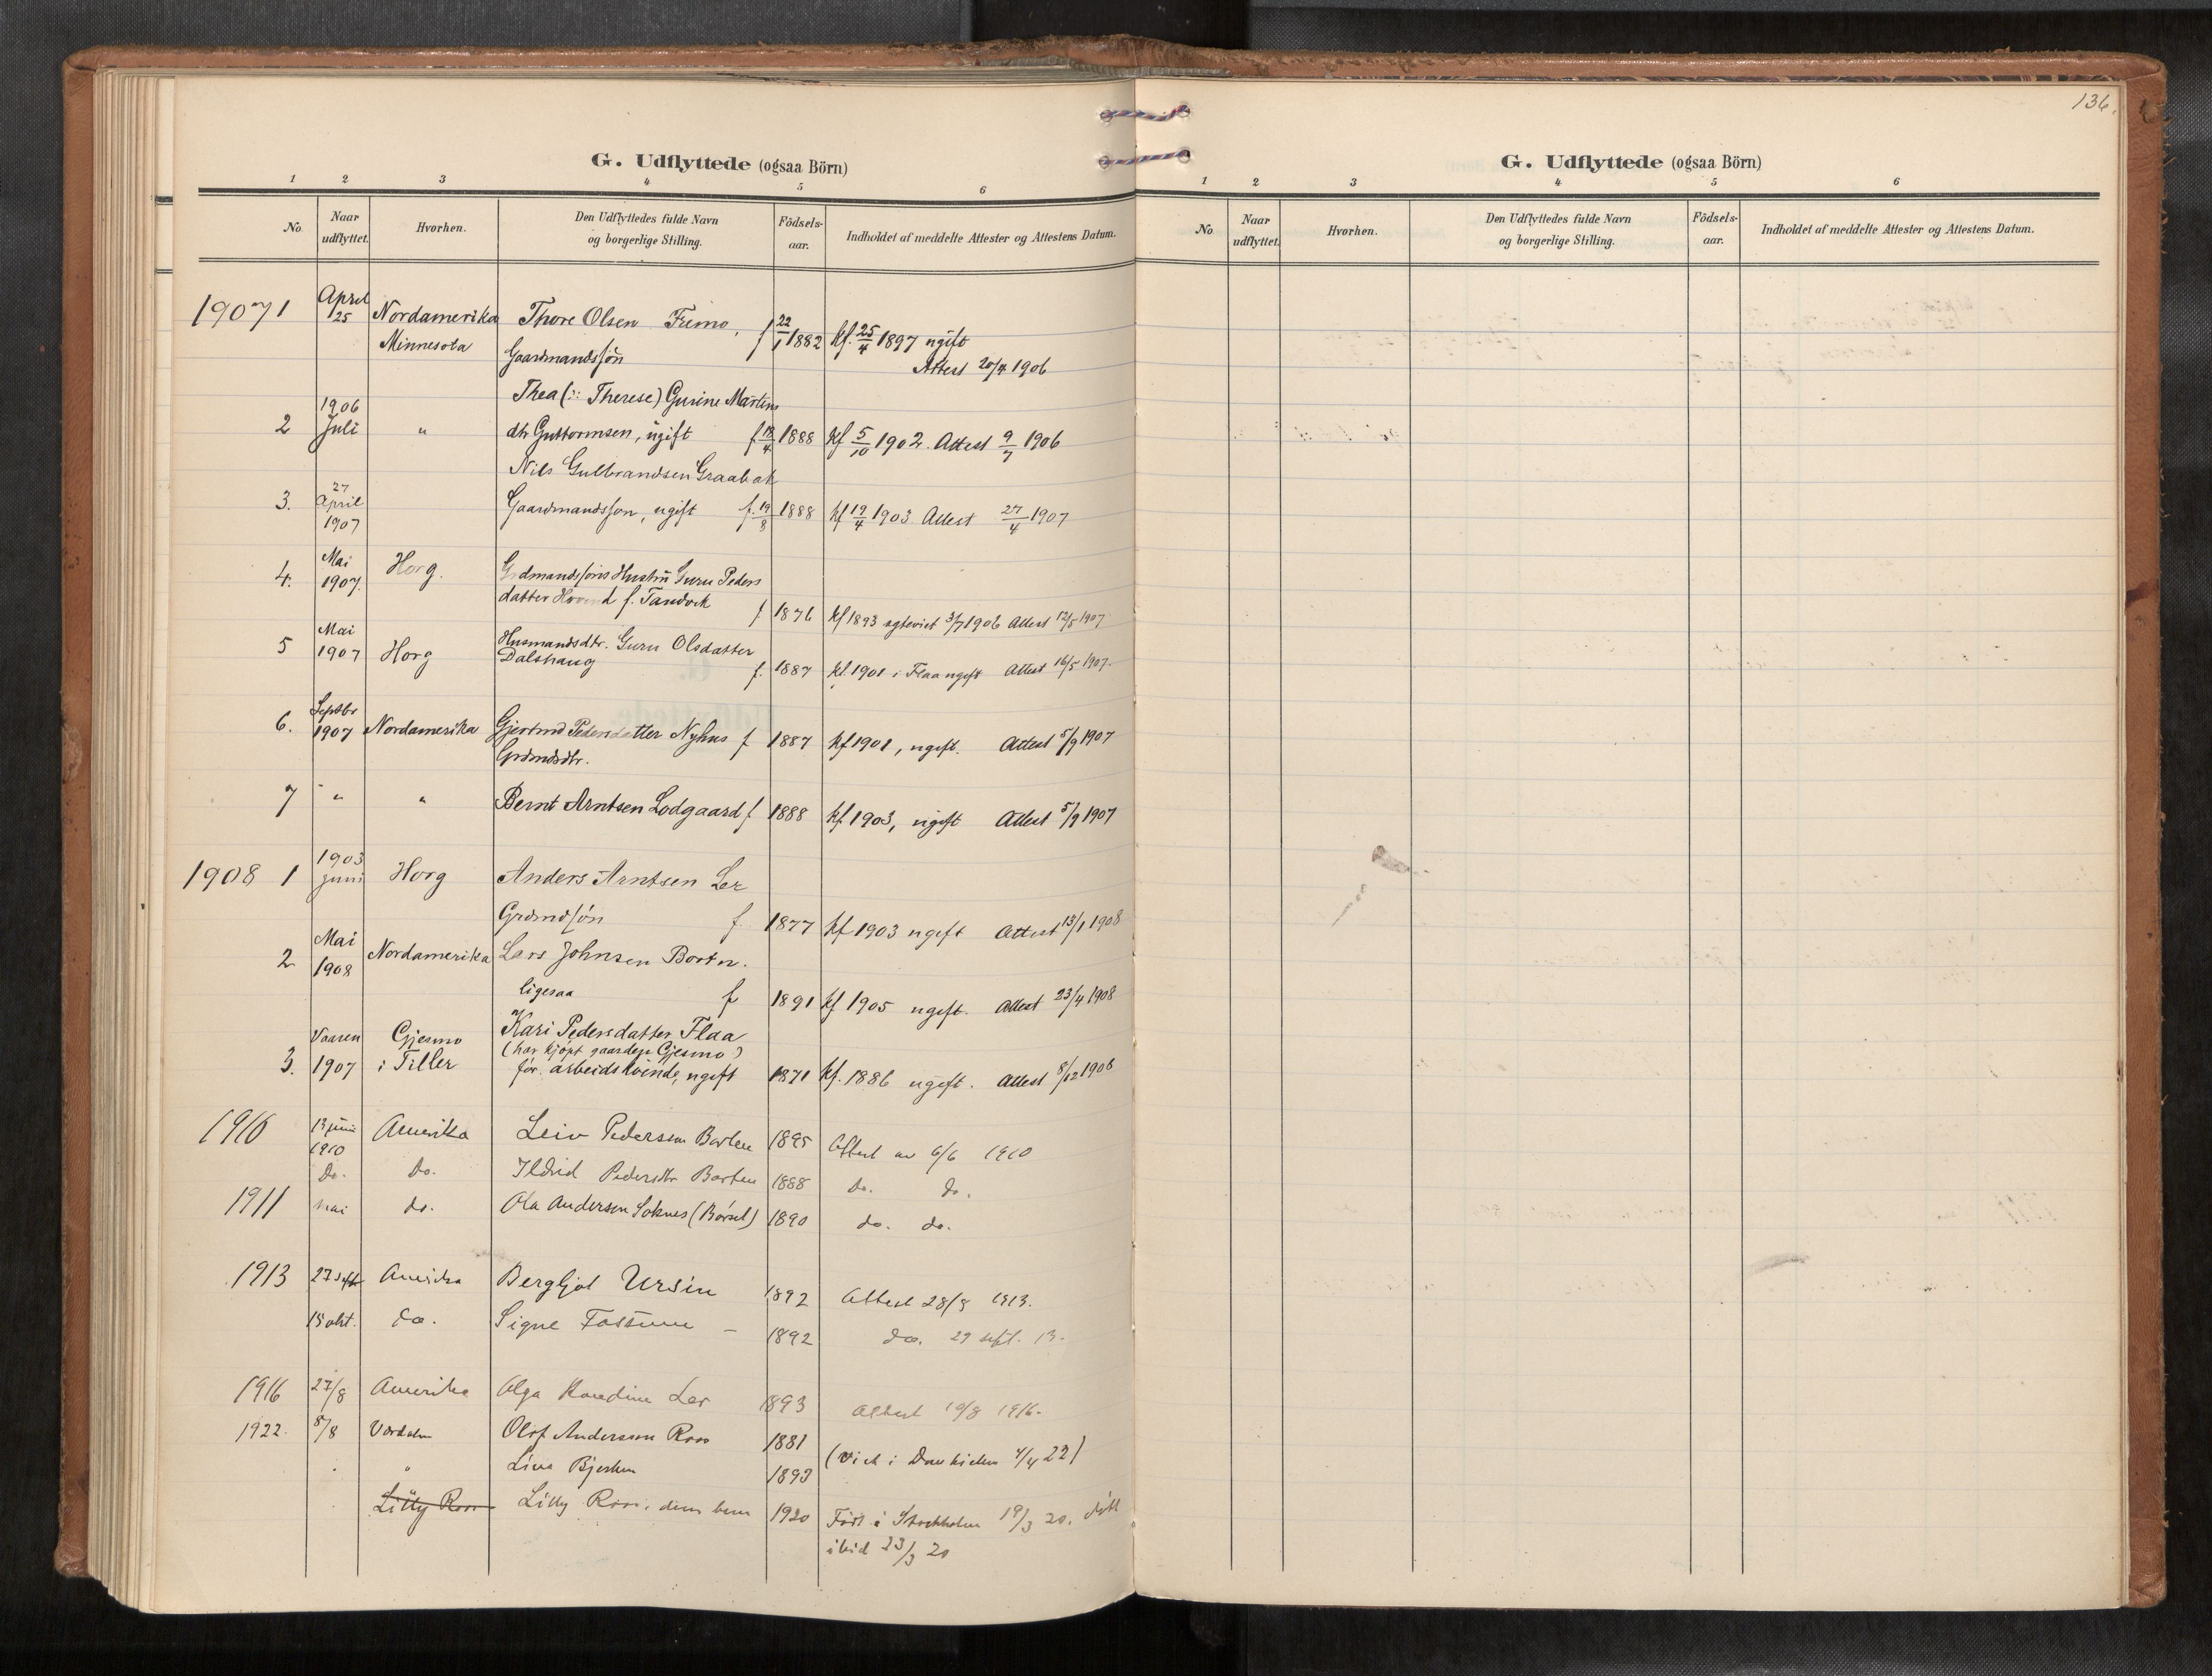 G. Udflyttede (ogsaa Börn)
1 2 3 4 5 6
No. Naar udflyttet. Hvorhen. Den Udflyttedes fulde Navn og borgerlige Stilling. Födsels-aar. Indholdet af meddelte Attester og Attestens Datum.
1907 1 April 25 Nordamerika Thore Olsen Fremo, f 22/1 1882 kf. 25/4 1897 ugift
Minnesota Gaardmandssøn Attest 20/4 1906
Thea (ɔ: Therese) Gurine Martins
2 1906 Juli " dtr Guttormsen, ugift f 18/4 1888 kf 5/10 1902. Attest 9/7 1906
Nils Gulbrandsen Graabak
3. 27 April 1907 Gaardmandssøn, ugift f. 19/8 1888 kf 19/4 1903 Attest 27/4 1907
4. Mai 1907. Horg. Grdmandssøns Hustru Guru Peders
datter Hovind f. Tandvek f 1876 kf 1893 egteviet 3/7 1906 Attest 12/5 1907
5 Mai 1907 Horg Husmandsdtr. Guru Olsdatter
Dalshaug f. 1887 kf. 1901 i Flaa ugift Attest 16/5 1907.
6. Septbr 1907 Nordamerika Gjertrud Pedersdatter Nyhus f 1887 kf 1901, ugift. Attest 5/9 1907
Grdmdsdtr.
7 " " Bernt Arntsen Lodgaard f 1888 kf. 1903, ugift Attest 5/9 1907
1908 1 1903 juni Horg Anders Arntsen Ler
Grdmdsøn f. 1877 kf 1903 ugift Attest 13/1 1908
2 Mai 1908 Nordamerika Lars Johnsen Borten.
ligesaa f 1891 kf 1905 ugift. Attest 23/4 1908
Vaaren Gjesmo Kari Pedersdatter Flaa
(har kjöpt gaarden Gjesmo)
3. 1907 i Tiller før. arbeidskvinde, ugift 1871 kf. 1886 ugift. Attest 8/12 1908
1910 13 juni 1910 Amerika Leiv Pedersen Borten 1895 Attest av 6/6 1910
Do. Do. Ildrid Pedersdtr Borten 1888 Do. Do.
1911 mai do. Ola Andersen Loknes (Børset) 1890 do. do.
1913 27 sept Amerika Bergljot Ursin 1892 Attest 28/8 1913.
15 okt. do. Signe Fossum – 1892 do. 29 sept. 13.
1916 27/8 Amerika Olga Ler 1893 Attest 19/8 1916.
1922. 8/8 Værdalen Olof Andersson Roos 1881 (Viet i 4/4 22)
" Lina 1893
Lilly Roos Lilly Roos, deres barn 1920 Født i Stockholm 19/3 20. døbt
ibid 23/3 20
136.
G. Udflyttede (ogsaa Börn)
1 2 3 4 5 6
No. Naar udflyttet. Hvorhen. Den Udflyttedes fulde Navn og borgerlige Stilling. Födsels-aar. Indholdet af meddelte Attester og Attestens Datum.